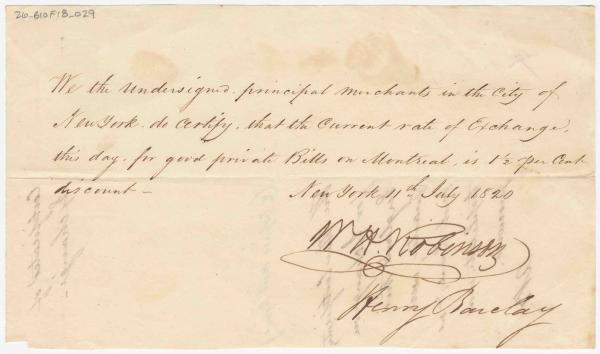 26-B10F18_029
We the undersigned principal merchants in the City of
New York do certify, that the Current rate of Exchange,
this day, for good private Bills on Montreal, is 1½ per Cent
discount —
New York 11th July 1820
Wm H. Robinson
Henry Barclay